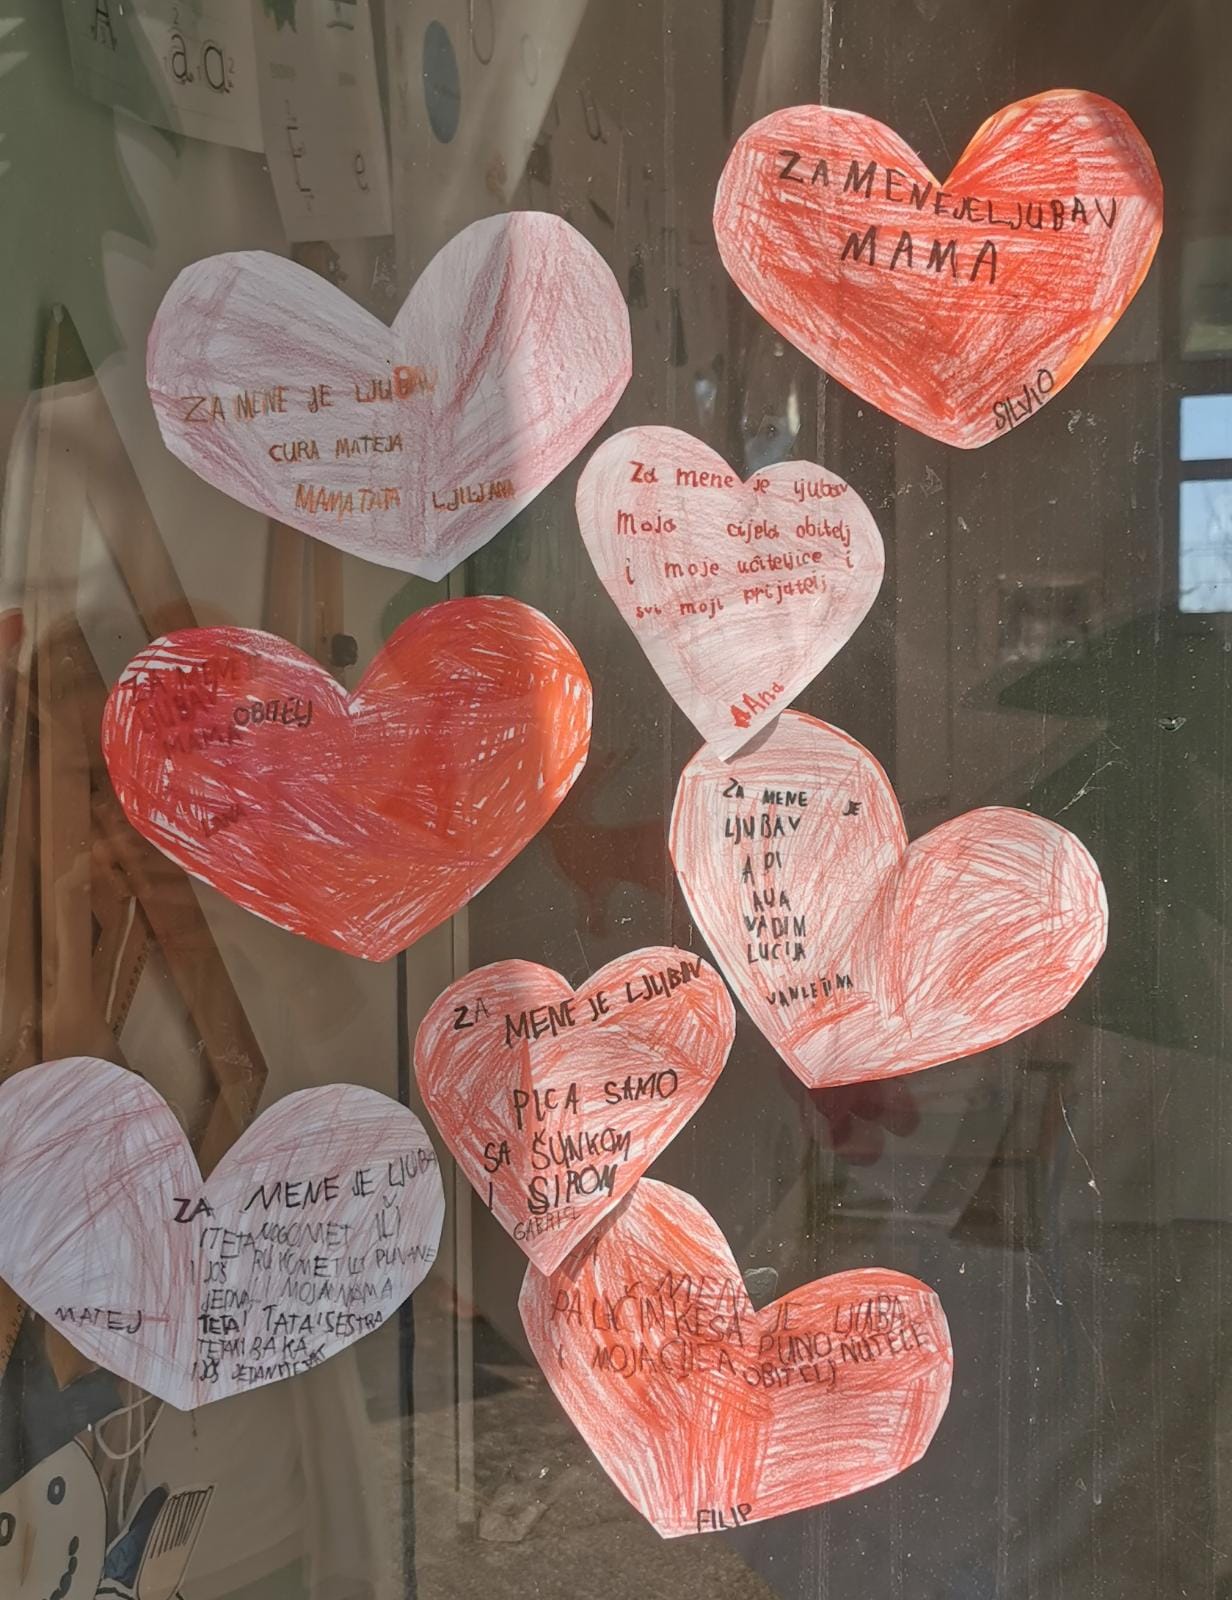 A
a a
e
ZA MENE JE LJUBAV
MAMA
SILVIO
ZA MENE JE LJUBAV
CURA MATEJA
MAMA TATA LJILJANA
Za mene je ljubav
moja cijela obitelj
i moje učiteljice i
svi moji prijatelj
Ana
ZA MENE
LJUBAV OBITELJ
MAMA
ZA MENE JE
LJUBAV
ADI
AVA
VADIM
LUCIJA
ZA MENE JE LJUBAV
PICA SAMO
SA ŠUNKOM
I SIROM
GABRIEL
ZA MENE JE LJUBA
I TETA NOGOMET ILI
I JOŠ RUKOMET ILI
JEDNA I MOJA MAMA
TETA I TATA I SESTRA
BAKA
I JOŠ JEDAN
MATEJ
ZA MENE JE LJUBA
PALAČINKE SA PUNO NUTELE
I MOJA OBITELJ
FILIP